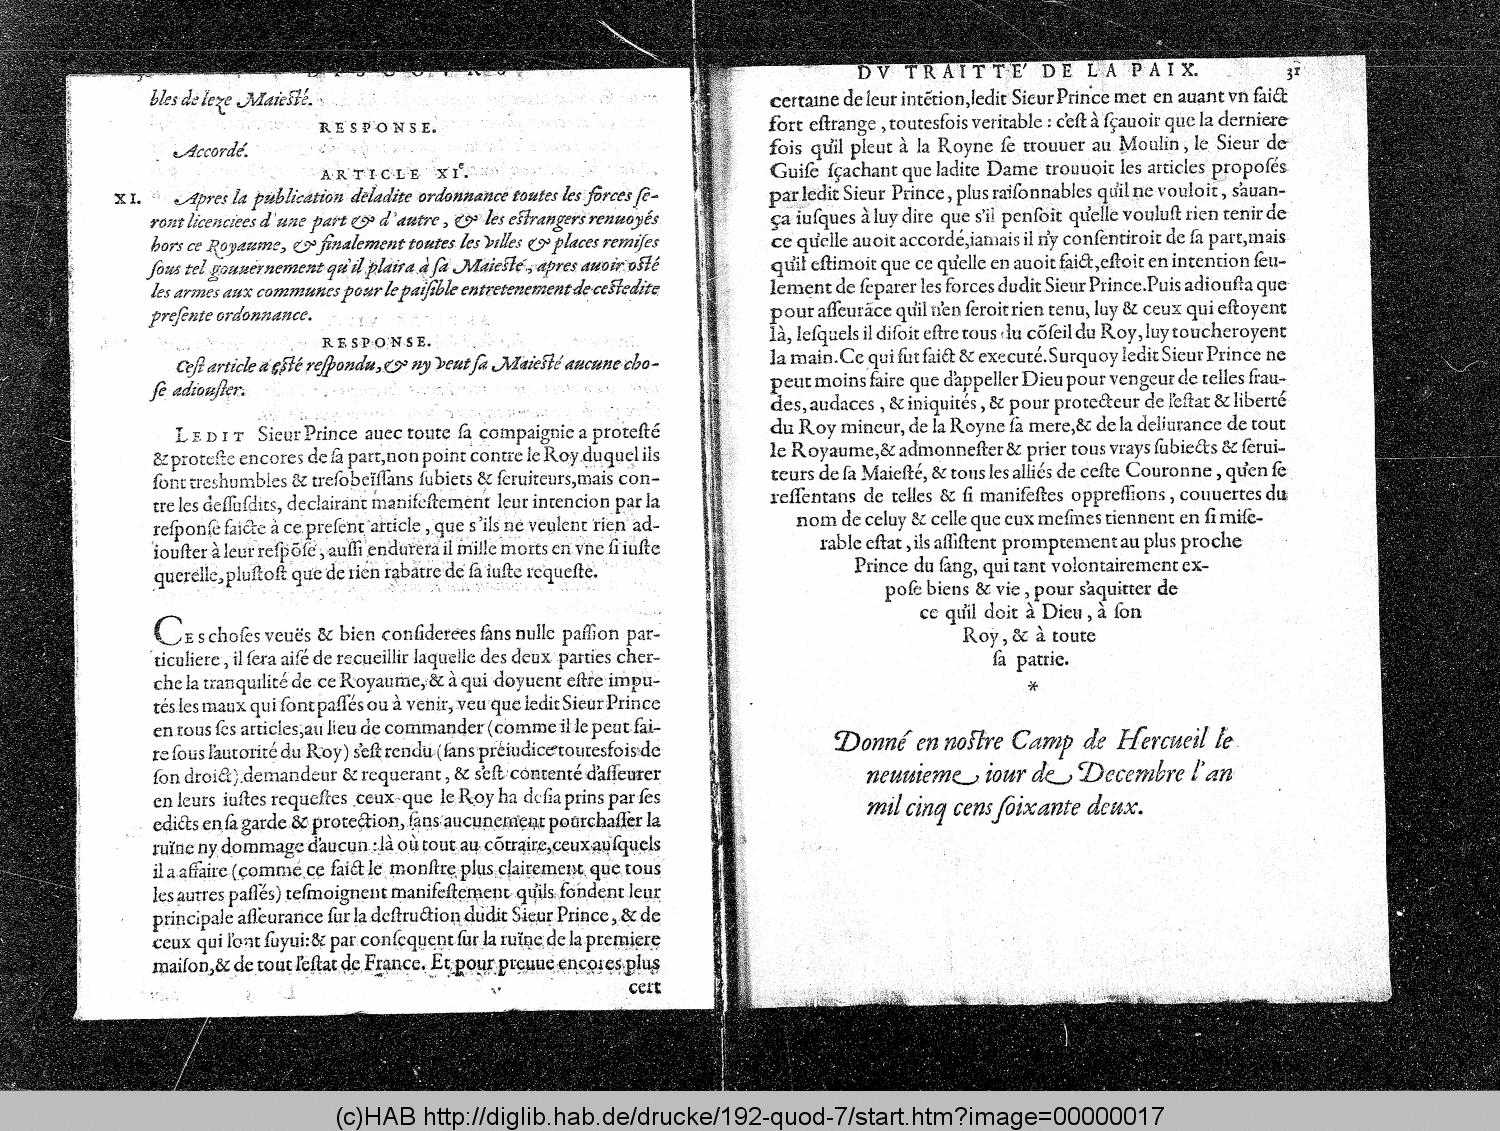 DISCOVRS
bles de leze Maiesté.
RESPONSE.
Accordé.
ARTICLE XIe.
XI. Apres la publication de ladite ordonnance toutes les forces se-
ront licenciees d'une part & d'autre, & les estrangers renuoyés
hors ce Royaume, & finalement toutes les villes & places remises
sous tel gouuernement qu'il plaira à sa Maiesté, apres auoir osté
les armes aux communes pour le paisible entretenement de cestedite
presente ordonnance.
RESPONSE.
Cest article a esté respondu, & ny veut sa Maiesté aucune cho-
se adiouster.
LEDIT Sieur Prince auec toute sa compaignie a protesté
& proteste encores de sa part, non point contre le Roy duquel ils
sont treshumbles & tresobeïssans subiets & seruiteurs, mais con-
tre les dessusdits, declairant manifestement leur intencion par la
response faicte à ce present article, que s'ils ne veulent rien ad-
iouster à leur respõse, aussi endurera il mille morts en vne si iuste
querelle, plustost que de rien rabatre de sa iuste requeste.
CES choses veuës & bien considerees sans nulle passion par-
ticuliere, il sera aisé de recueillir laquelle des deux parties cher-
che la tranquilité de ce Royaume, & à qui doyuent estre impu-
tés les maux qui sont passés ou à venir, veu que ledit Sieur Prince
en tous ses articles, au lieu de commander (comme il le peut fai-
re sous l'autorité du Roy) s'est rendu (sans preiudice toutesfois de
son droict) demandeur & requerant, & s'est contenté d'asseurer
en leurs iustes requestes ceux que le Roy ha desia prins par ses
edicts en sa garde & protection, sans aucunement pourchasser la
ruïne ny dommage d'aucun: là où tout au cõtraire, ceux ausquels
il a affaire (comme ce faict le monstre plus clairement que tous
les autres passés) tesmoignent manifestement qu'ils fondent leur
principale asseurance sur la destruction dudit Sieur Prince, & de
ceux qui l'ont suyui: & par consequent sur la ruïne de la premiere
maison, & de tout l'estat de France. Et pour preuue encores plus
cert
DV TRAITTE' DE LA PAIX. 31
certaine de leur intẽtion, ledit Sieur Prince met en auant vn faict
fort estrange, toutesfois veritable: c'est à sçauoir que la derniere
fois qu'il pleut à la Royne se trouuer au Moulin, le Sieur de
Guise sçachant que ladite Dame trouuoit les articles proposés
par ledit Sieur Prince, plus raisonnables qu'il ne vouloit, s'auan-
ça iusques à luy dire que s'il pensoit qu'elle voulust rien tenir de
ce qu'elle auoit accordé, iamais il n'y consentiroit de sa part, mais
qu'il estimoit que ce qu'elle en auoit faict, estoit en intention seu-
lement de separer les forces dudit Sieur Prince. Puis adiousta que
pour asseurãce qu'il n'en seroit rien tenu, luy & ceux qui estoyent
là, lesquels il disoit estre tous du cõseil du Roy, luy toucheroyent
la main. Ce qui fut faict & executé. Surquoy ledit Sieur Prince ne
peut moins faire que d'appeller Dieu pour vengeur de telles frau-
des, audaces, & iniquités, & pour protecteur de l'estat & liberté
du Roy mineur, de la Royne sa mere, & de la deliurance de tout
le Royaume, & admonnester & prier tous vrays subiects & serui-
teurs de sa Maiesté, & tous les alliés de ceste Couronne, qu'en se
ressentans de telles & si manifestes oppressions, couuertes du
nom de celuy & celle que eux mesmes tiennent en si mise-
rable estat, ils assistent promptement au plus proche
Prince du sang, qui tant volontairement ex-
pose biens & vie, pour s'aquitter de
ce qu'il doit à Dieu, à son
Roy, & à toute
sa patrie.
*
Donné en nostre Camp de Hercueil le
neuuieme iour de Decembre l'an
mil cinq cens soixante deux.
(c)HAB http://diglib.hab.de/drucke/192-quod-7/start.htm?image=00000017